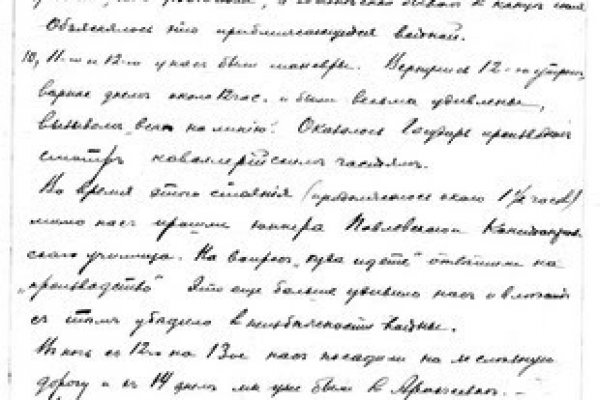 Объяснялось это приближающейся войной.
10, 11-го и 12-го у нас были маневры. Вернулись 12-го утром,
вернее днем около 12 час. и были весьма удивлены,
вызывом „всех на линию“. Оказалось Государь производит
смотр кавалерийским частям.
Во время этого стояния (продолжалось около 1½ часов)
мимо нас прошли юнкера Павловского
ского училища. На вопрос „куда идете“ отвечали на
„производство“ Это еще больше удивило нас и
с этим убедило в неизбежности войны.
В ночь с 12го на 13ое нас посадили на железную
дорогу и к 14 днем мы уже были в